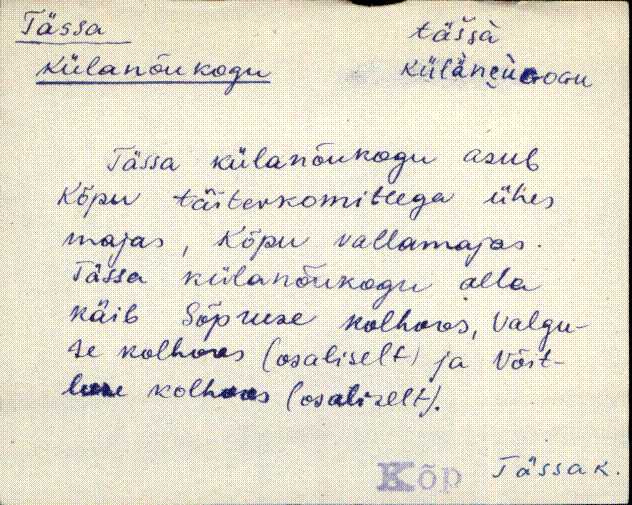 Tässa täšsà
külanõukogu
Tässa külanõukogu asub
Kõpu täiterkomiteega ühes
majas, Kõpu vallamajas.
Tässa külanõukogu alla
käib Sõpruse kolhoos, Valgu-
se kolhoos (osaliselt) ja Võist-
luse kolhoos (osaliselt).
Kõp Tässa k.